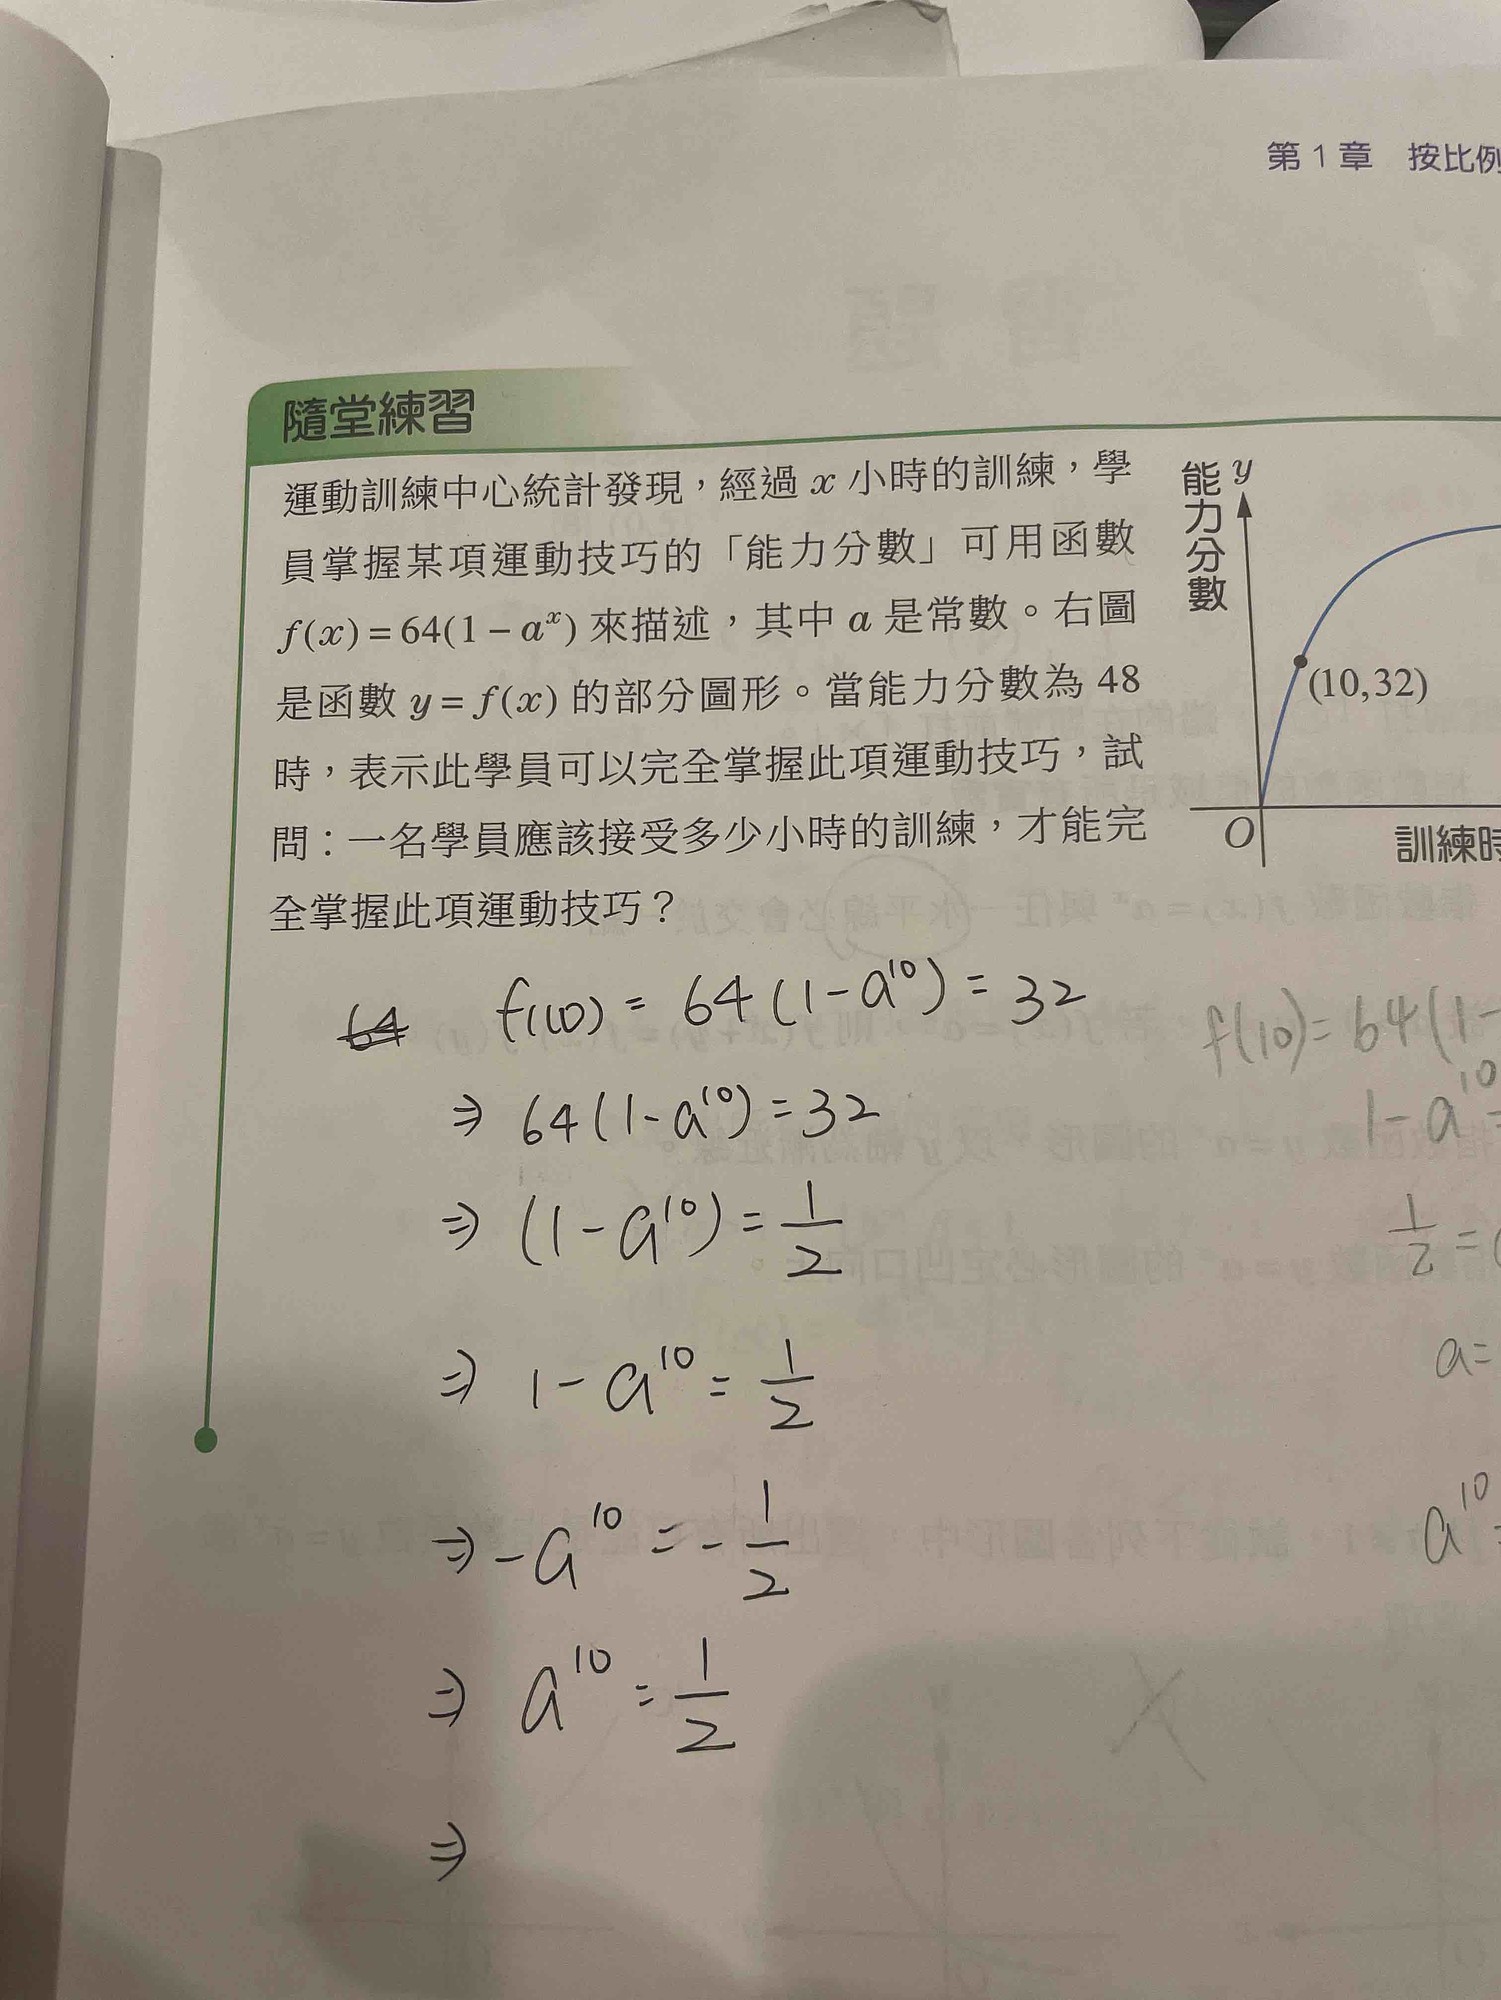 第1章 按比例
隨堂練習
運動訓練中心統計發現，經過 x 小時的訓練，學
員掌握某項運動技巧的「能力分數」可用函數
f(x)=64(1－aˣ) 來描述，其中 a 是常數。右圖
是函數 y=f(x) 的部分圖形。當能力分數為 48
時，表示此學員可以完全掌握此項運動技巧，試
問：一名學員應該接受多少小時的訓練，才能完
全掌握此項運動技巧？
能力分數
y
(10,32)
O
訓練時
64 f(10) = 64(1-a¹⁰) = 32
⇒ 64(1-a¹⁰)=32
⇒ (1-a¹⁰)=1/2
⇒ 1-a¹⁰=1/2
⇒ -a¹⁰=-1/2
⇒ a¹⁰=1/2
⇒
f(10)=64(1-
1-a¹⁰=
1/2=
a=
a¹⁰